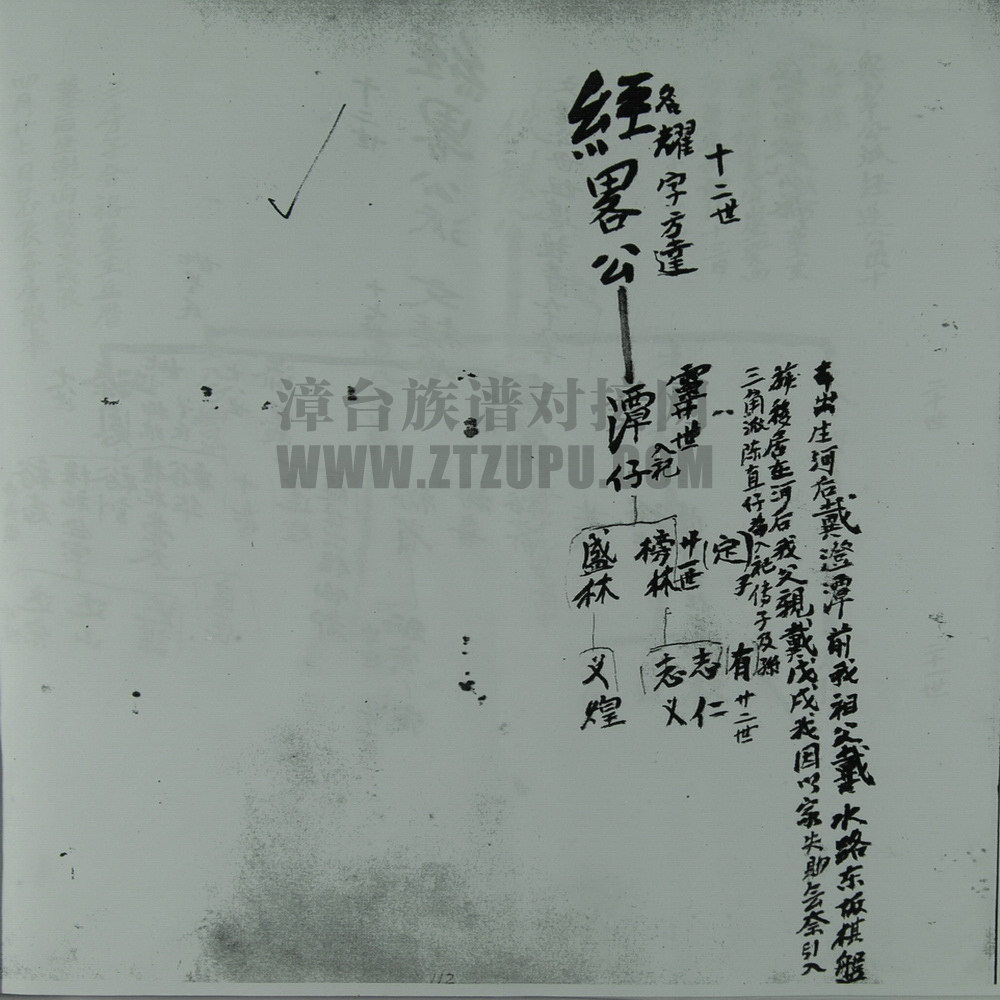 十二世
名耀字方達
經畧公
潭仔
入祀
榜林
盛林
廿一世
(定)
志仁
志义
义煌
有
廿二世
出生河后戴澄潭前我祖父戴水路东坂棋盤
移居在河后我父親戴茂成我因以家失助奈引入
三角派陈直仔入祀传子及孫
漳台族谱对接网
WWW.ZTZUPU.COM
112